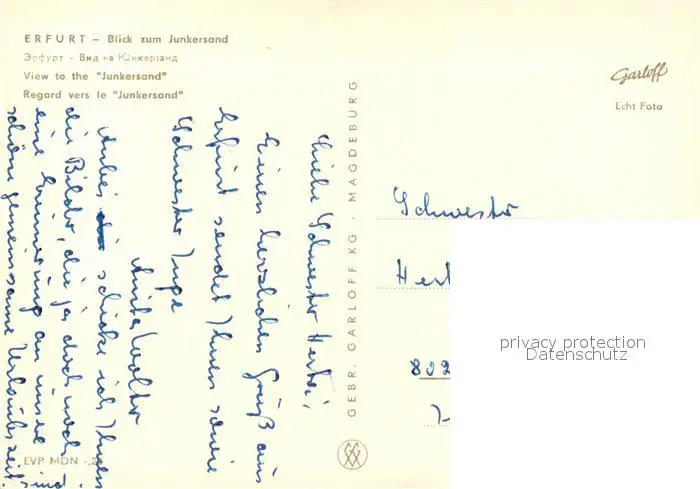 ERFURT – Blick zum Junkersand
Эрфурт - Вид на Юнкерзанд
View to the "Junkersand"
Regard vers le "Junkersand"
Garloff
Echt Foto
GEBR. GARLOFF KG · MAGDEBURG
Liebe Schwester Herta!
Einen herzlichen Gruß aus
Erfurt sendet Ihnen sowie
Schwester Inge
Anita Walter
Anbei schicke ich Ihnen
die Bilder, die ja doch noch
eine Erinnerung an unsere
schöne gemeinsame Urlaubszeit sind.
Schwester
Hert
802
privacy protection
Datenschutz
EVP MDN -,2